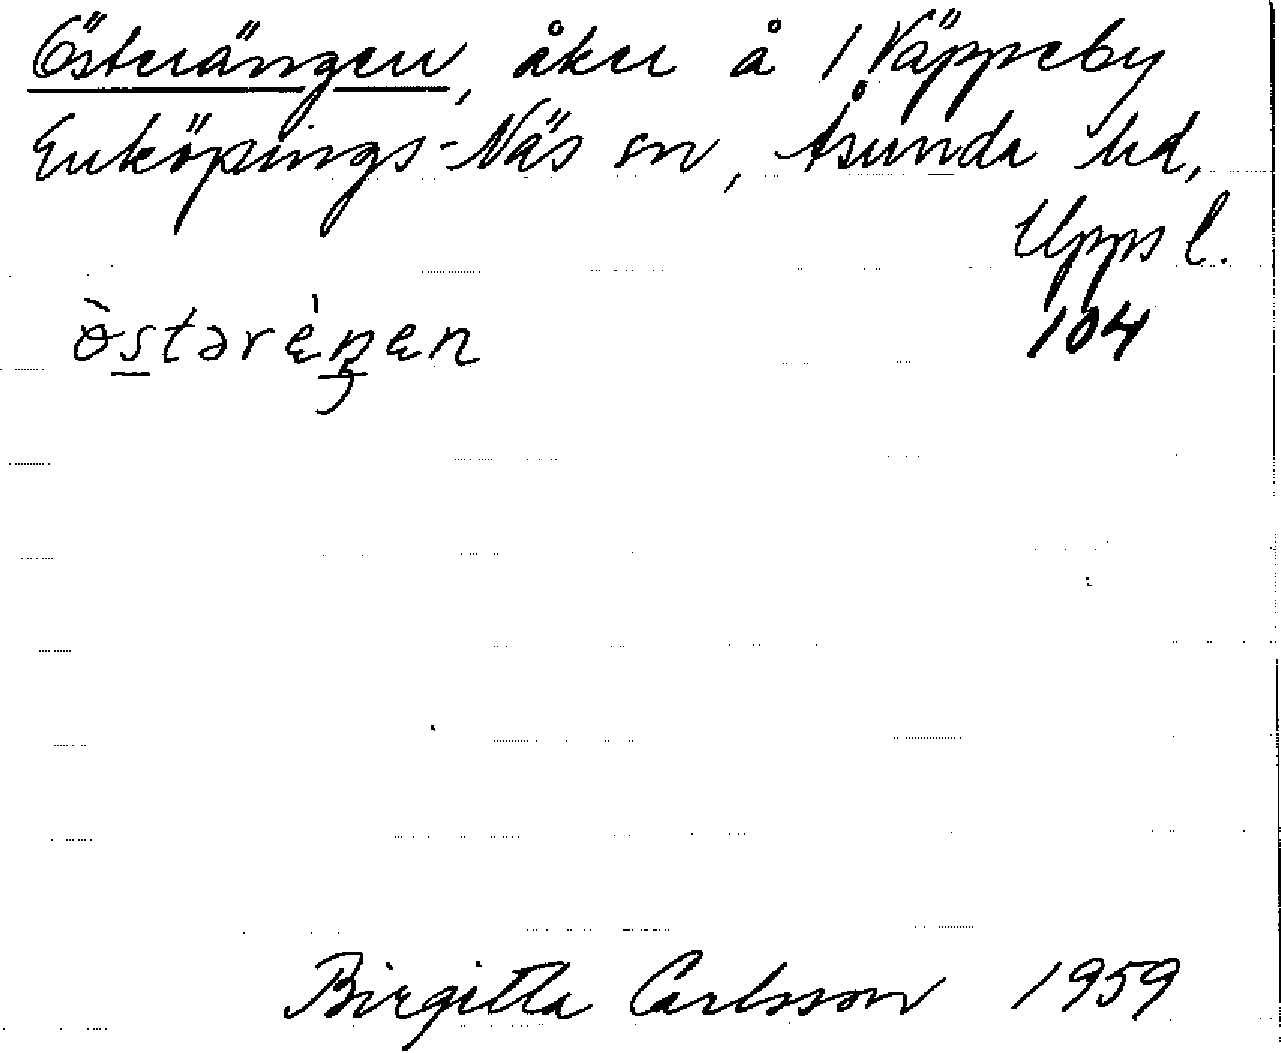 Österängen, åker å 1 Väppeby
Enköpings-Näs sn, Åsunda hd,
Upps l.
104
Birgitta Carlsson 1959